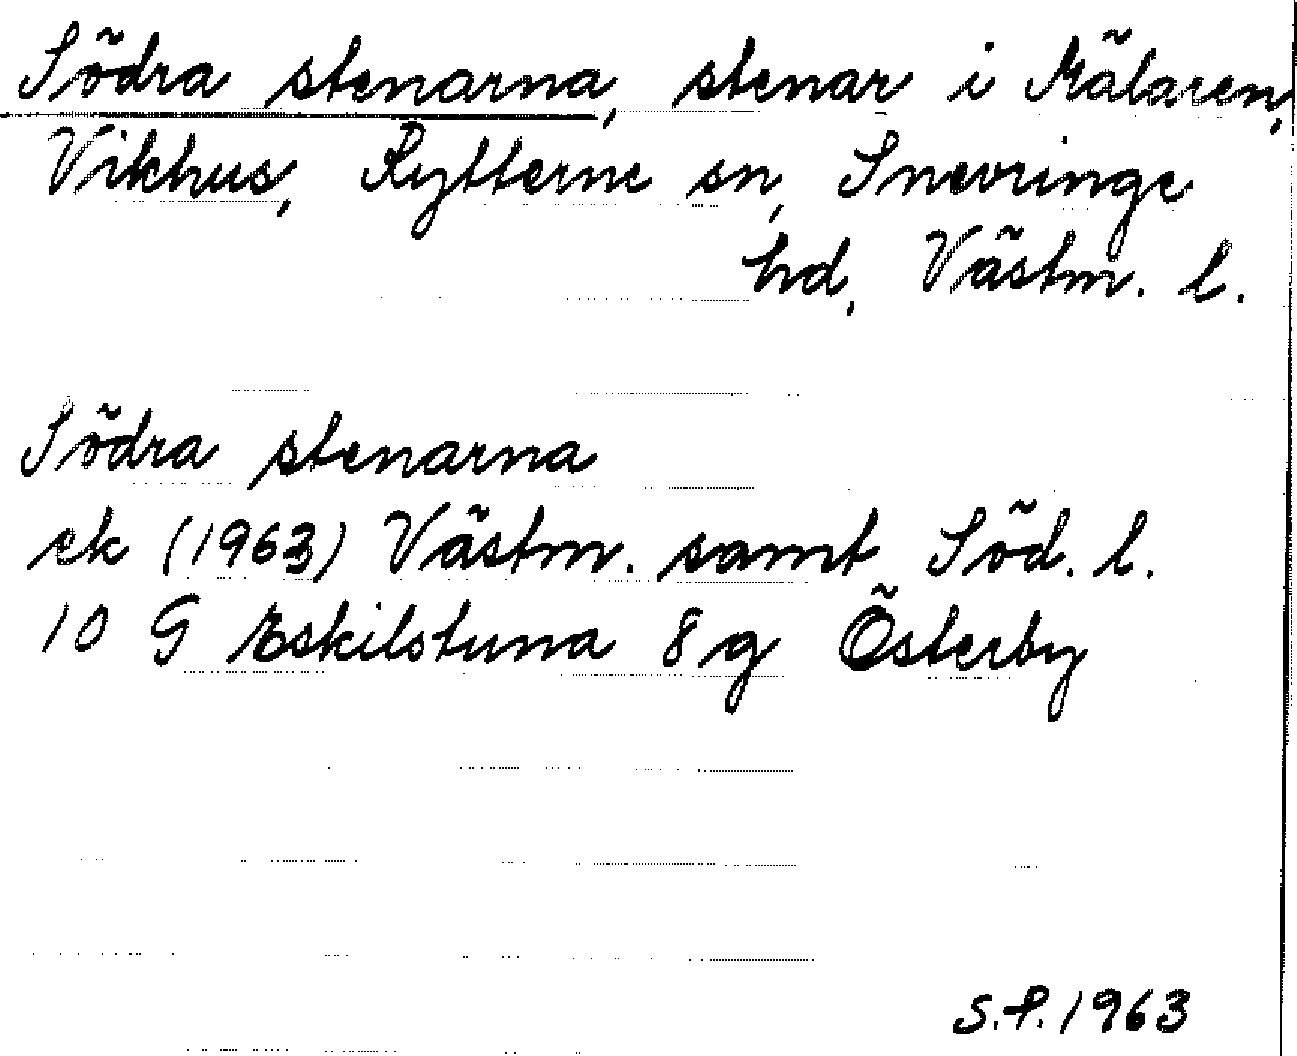 Södra stenarna, stenar i Mälaren,
Vikhus, Rytterne sn, Snevringe
hd, Västm. l.
Södra stenarna
ek (1963) Västm. samt Söd. l.
10 G Eskilstuna 8 g Österby
S.P. 1963